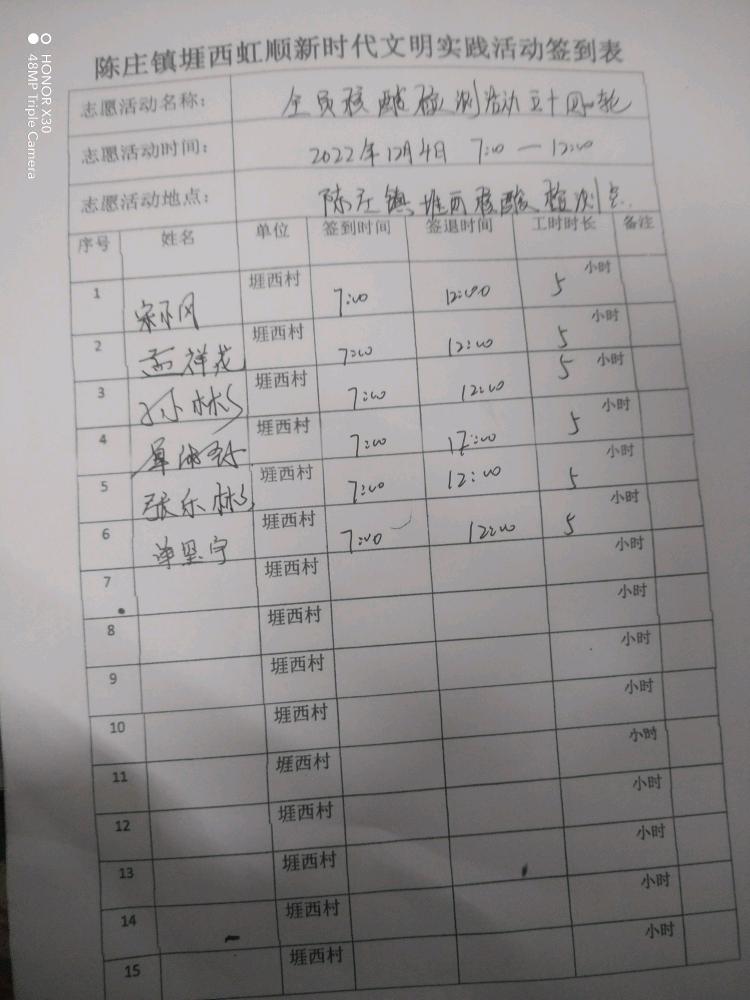 HONOR X30
48MP Triple Camera
陈庄镇堐西虹顺新时代文明实践活动签到表
志愿活动名称： 全员核酸检测活动五十四轮
志愿活动时间： 2022年12月4日 7:00 — 12:00
志愿活动地点： 陈庄镇堐西核酸检测点
序号 姓名 单位 签到时间 签退时间 工时时长 备注
1 堐西村 7:00 12:00 5 小时
2 孟祥花 堐西村 7:00 12:00 5 小时
3 孙彬 堐西村 7:00 12:00 5 小时
4 堐西村 7:00 12:00 5 小时
5 张乐彬 堐西村 7:00 12:00 5 小时
6 堐西村 7:00 12:00 5 小时
7 堐西村 小时
8 堐西村 小时
9 堐西村 小时
10 堐西村 小时
11 堐西村 小时
12 堐西村 小时
13 堐西村 小时
14 堐西村 小时
15 堐西村 小时